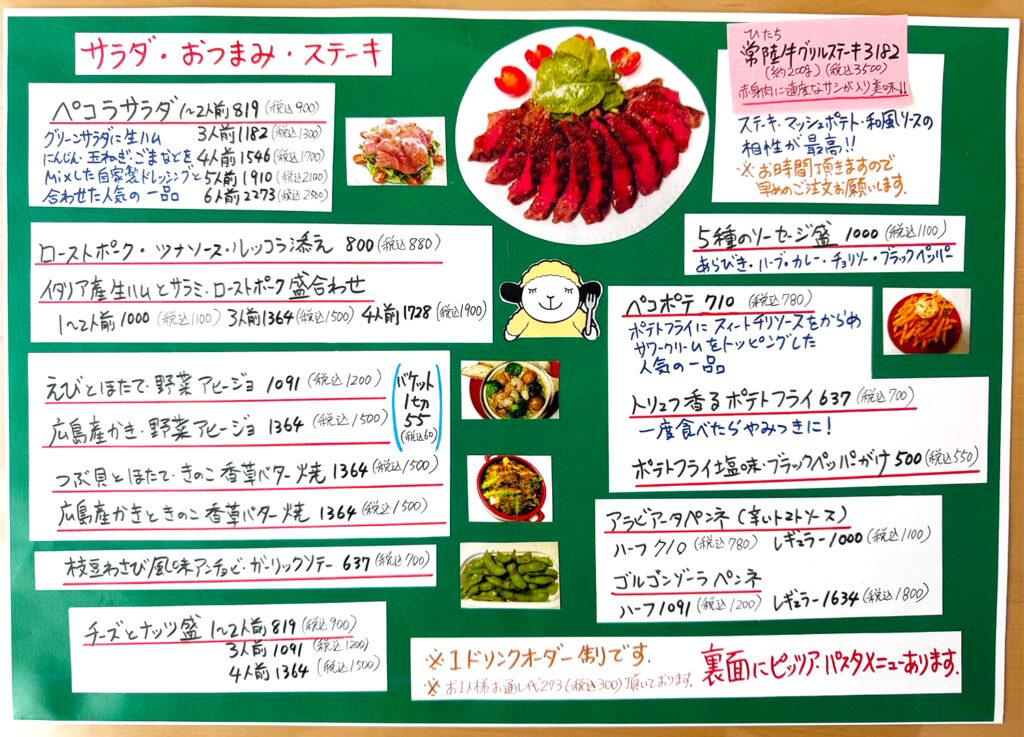 サラダ・おつまみ・ステーキ
ペコラサラダ 1~2人前 819 (税込900)
グリーンサラダに生ハム 3人前 1182 (税込1300)
にんじん・玉ねぎ・ごまなどを 4人前 1546 (税込1700)
Mixした自家製ドレッシングと 5人前 1910 (税込2100)
合わせた人気の一品 6人前 2273 (税込2500)
ローストポーク・ツナソース・ルッコラ添え 800 (税込880)
イタリア産生ハムとサラミ・ローストポーク盛合わせ
1~2人前 1000 (税込1100) 3人前 1364 (税込1500) 4人前 1728 (税込1900)
えびとほたて・野菜アヒージョ 1091 (税込1200)
広島産かき・野菜アヒージョ 1364 (税込1500)
バケット
1切
55
(税込60)
つぶ貝とほたて・きのこ香草バター焼 1364 (税込1500)
広島産かきときのこ香草バター焼 1364 (税込1500)
枝豆わさび風味アンチョビ・ガーリックソテー 637 (税込700)
チーズとナッツ盛 1~2人前 819 (税込900)
3人前 1091 (税込1200)
4人前 1364 (税込1500)
ひたち
常陸牛グリルステーキ 3182
(約200g) (税込3500)
赤身肉に適度なサシが入り美味!!
ステーキ・マッシュポテト・和風ソースの
相性が最高!!
※お時間頂きますので
早めのご注文お願いします。
5種のソーセージ盛 1000 (税込1100)
あらびき・ハーブ・カレー・チョリソー・ブラックペッパー
ペコポテ 710 (税込780)
ポテトフライにスィートチリソースをからめ
サワークリームをトッピングした
人気の一品
トリュフ香るポテトフライ 637 (税込700)
一度食べたらやみつきに!
ポテトフライ塩味・ブラックペッパーがけ 500 (税込550)
アラビアータペンネ (辛いトマトソース)
ハーフ 710 (税込780) レギュラー 1000 (税込1100)
ゴルゴンゾーラペンネ
ハーフ 1091 (税込1200) レギュラー 1634 (税込1800)
※1ドリンクオーダー制りです。
※お1人様お通し代293(税込300)頂いております。
裏面にピッツア・パスタメニューあります。